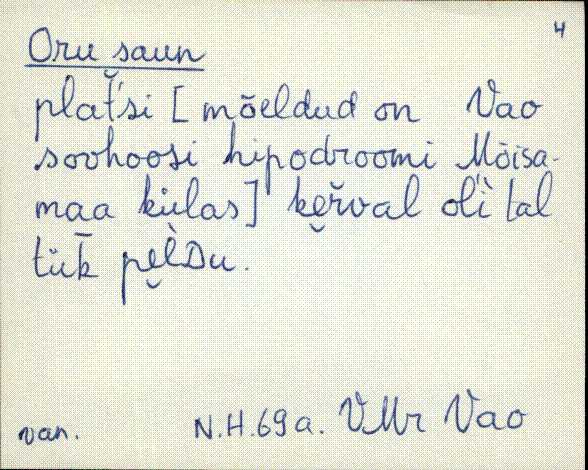 4
Oru saun
plat̆'si [mõeldud on Vao
sovhoosi hipodroomi Mõisa-
maa külas] ke̮r̆val oĺi tal
tük̄ pe̮l̀Du.
van. N.H. 69 a. VMr Vao